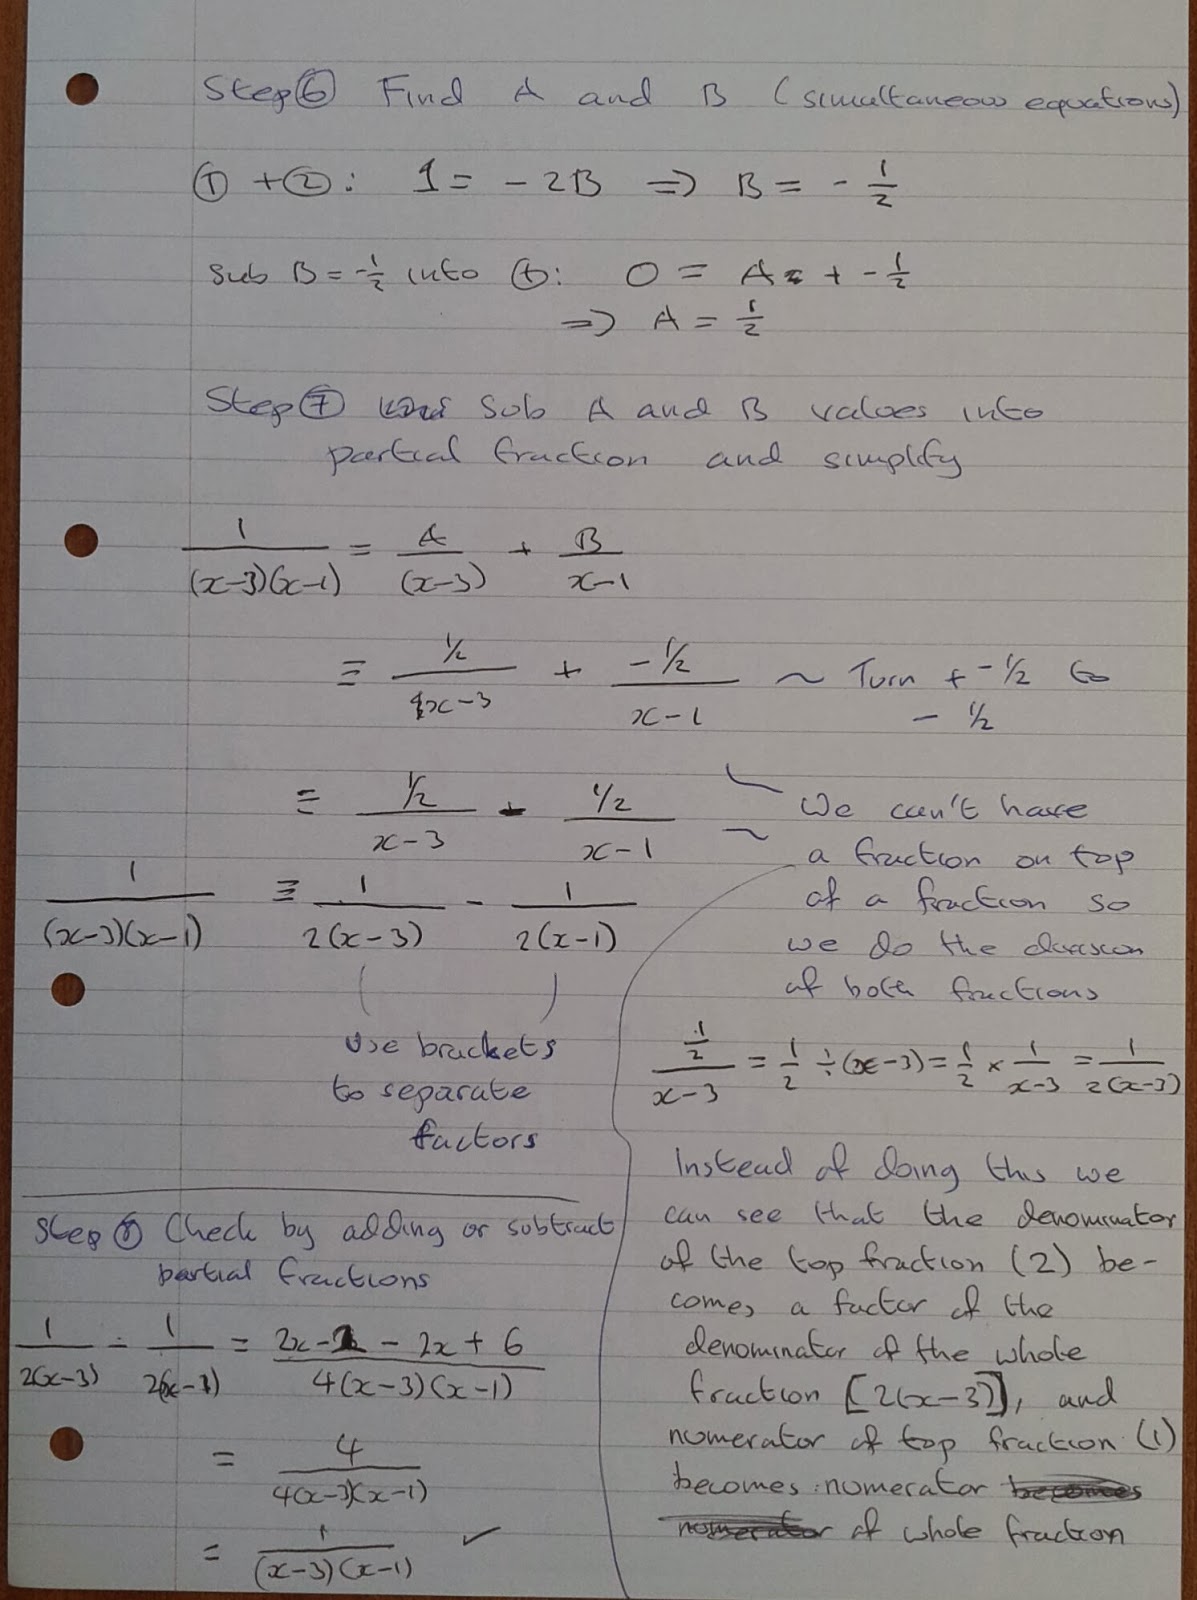 Step ⑥ Find A and B (simultaneous equations)
① + ②: 1 = - 2B ⇒ B = - 1/2
Sub B = -1/2 into ①: 0 = A + - 1/2
⇒ A = 1/2
Step ⑦ Sub A and B values into
partial fraction and simplify
1/((x-3)(x-1)) = A/(x-3) + B/(x-1)
≡ ½/(x-3) + -½/(x-1) ~ Turn + -½ to
- ½
≡ ½/(x-3) - ½/(x-1)
1/((x-3)(x-1)) ≡ 1/(2(x-3)) - 1/(2(x-1))
use brackets
to separate
factors
We can't have
a fraction on top
of a fraction so
we do the division
of both fractions
(1/2)/(x-3) = 1/2 ÷ (x-3) = 1/2 × 1/(x-3) = 1/(2(x-3))
Instead of doing this we
can see that the denominator
of the top fraction (2) be-
comes a factor of the
denominator of the whole
fraction [2(x-3)], and
numerator of top fraction (1)
becomes numerator
of whole fraction
Step ⑧ Check by adding or subtract
partial fractions
1/(2(x-3)) - 1/(2(x-1)) = (2x-2 - 2x + 6)/(4(x-3)(x-1))
= 4/(4(x-3)(x-1))
= 1/((x-3)(x-1)) ✓